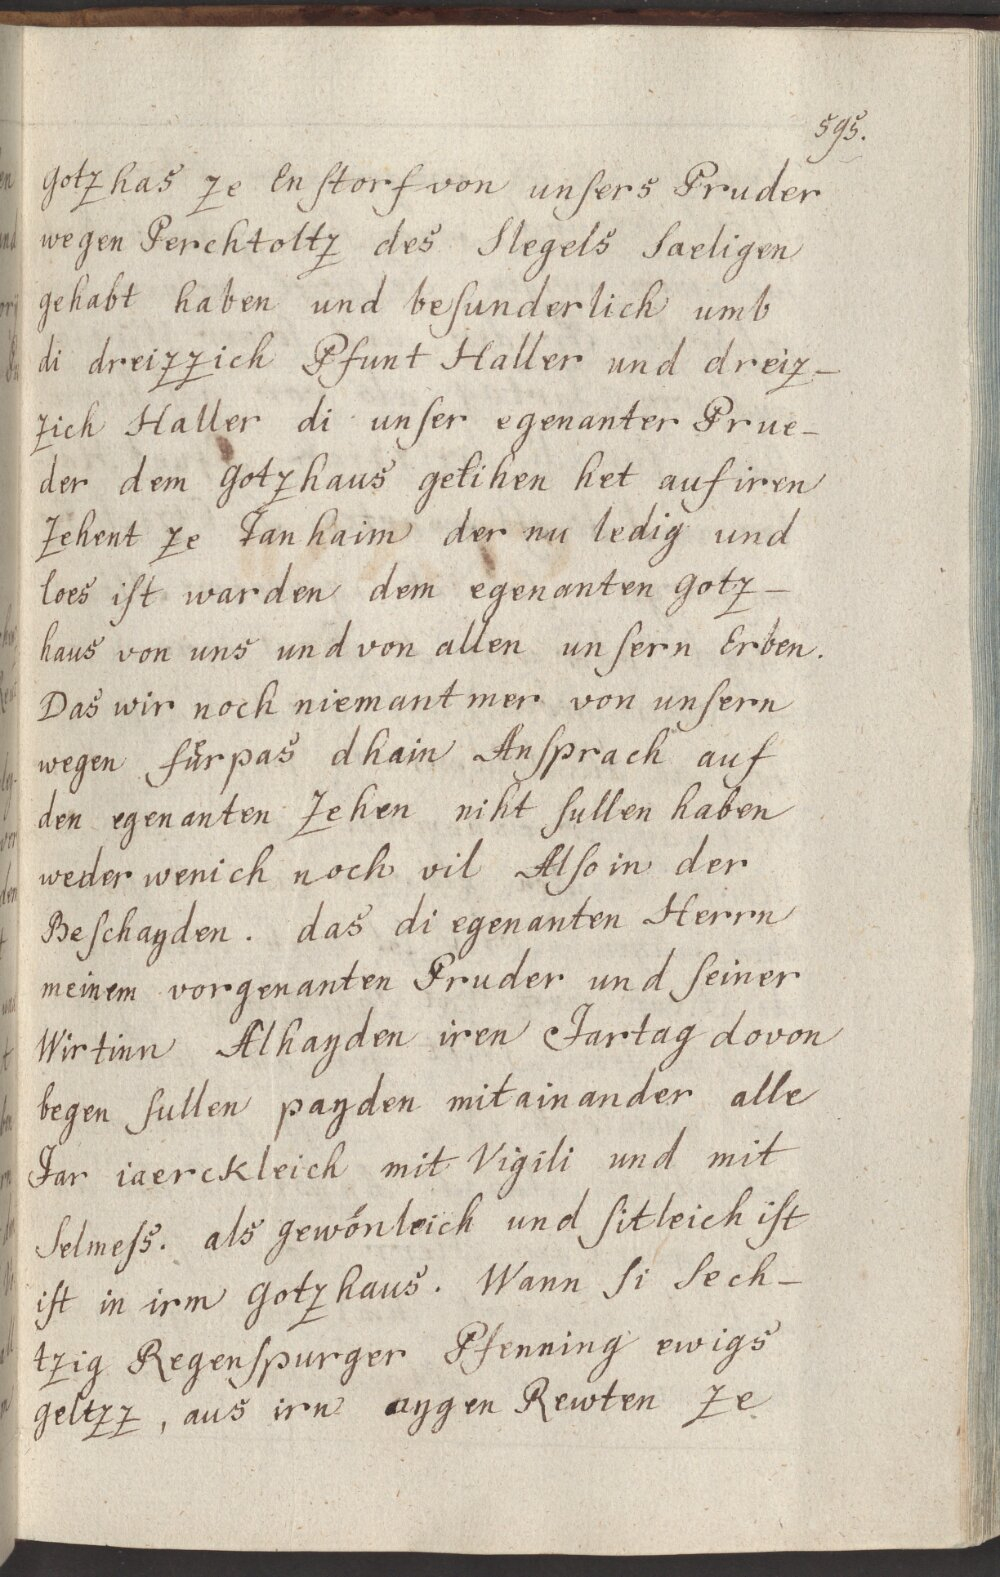 595.
gotzhas ze Enstorf von unsers Pruder
wegen Perchtoltz des Slegels saeligen
gehabt haben und besunderlich umb
di dreizzich Pfunt Haller und dreiz-
zich Haller di unser egenanter Prue-
der dem gotzhaus gelihen het auf iren
Zehent ze Tanhaim der nu ledig und
loes ist warden dem egenanten gotz-
haus von uns und von allen unsern Erben.
Das wir noch niemant mer von unsern
wegen fuͤrpas dhain Ansprach auf
den egenanten Zehen niht sullen haben
weder wenich noch vil Also in der
Beschayden. das di egenanten Herrn
meinem vorgenanten Pruder und seiner
Wirtinn Alhayden iren Jartag dovon
begen sullen payden mitainander alle
Jar iaerckleich mit Vigili und mit
Selmess. als gewönleich und sitleich ist
ist in irm gotzhaus. Wann si sech-
tzig Regenspurger Pfenning ewigs
geltzz, aus irn aygen Rewten ze